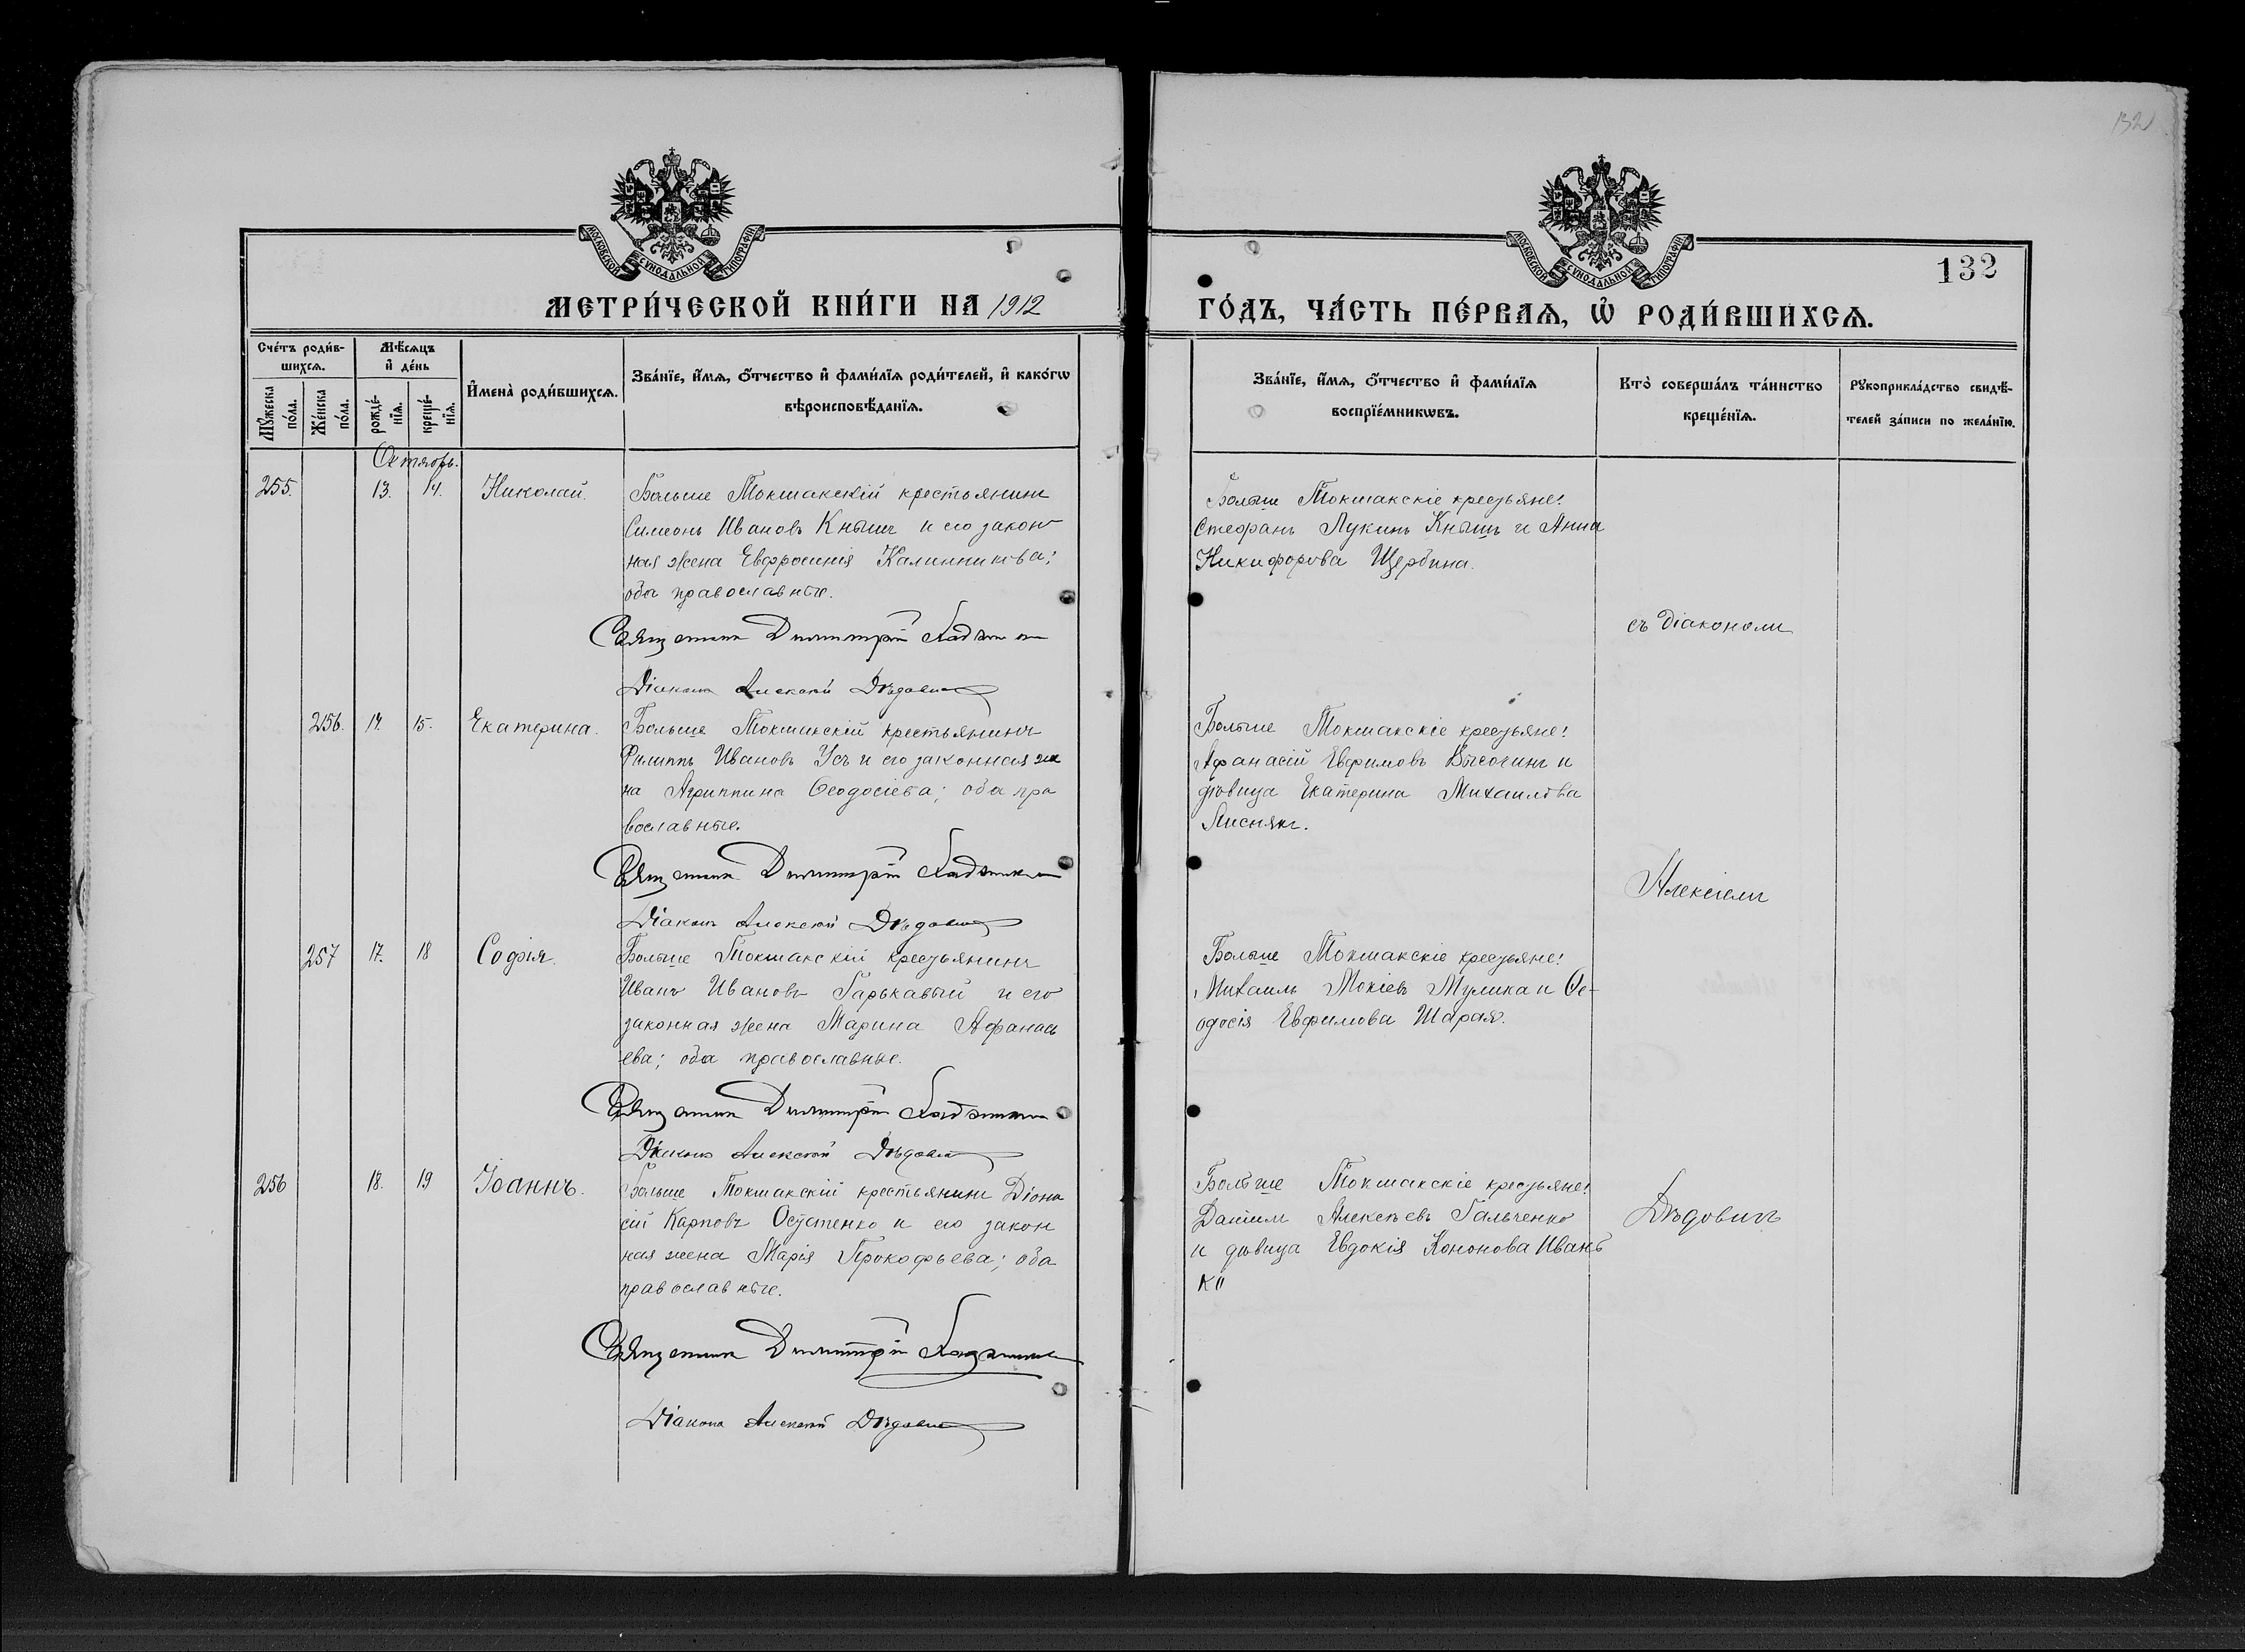 132
МОСКОВСКОЙ СУНОДАЛЬНОЙ ТИПОГРАФІИ
МОСКОВСКОЙ СУНОДАЛЬНОЙ ТИПОГРАФІИ
132
МЕТРИ́ЧЕСКОЙ КНИ́ГИ НА 1912
ГО́ДЪ, ЧА́СТЬ ПЕ́РВАѦ, Ѡ РОДИ́ВШИХСѦ.
Сче́тъ роди́в-
шихсѧ.
Мꙋ́жеска
по́ла.
Же́нска
по́ла.
Мѣ́сѧцъ
и҆ де́нь
рожде́-
нїѧ.
креще́-
нїѧ.
И҆мена̀ роди́вшихсѧ.
Зва́нїе, и҆́мѧ, ѻ҆́тчество и҆ фами́лїѧ роди́телей, и҆ како́гѡ
вѣроисповѣ́данїѧ.
Зва́нїе, и҆́мѧ, ѻ҆́тчество и҆ фами́лїѧ
воспрїе́мникѡвъ.
Кто̀ соверша́лъ та́инство
креще́нїѧ.
Рꙋкоприкла́дство свидѣ́-
телей за́писи по жела́нїю.
Октябрь.
255. 13. 14. Николай.
Больше Токмакскій крестьянинъ
Симеонъ Ивановъ Кнышъ и его закон
ная жена Евфросинія Калинникова;
оба православные.
Священникъ Димитрій
Діаконъ Алексій Дѣдовичъ
Больше Токмакскіе крестьяне:
Стефанъ Лукинъ Кнышъ и Анна
Никифорова Щербина.
съ Діакономъ
256. 14. 15. Екатерина.
Больше Токмакскій крестьянинъ
Филиппъ Ивановъ Усъ и его законная же
на Агриппина Ѳеодосіева; оба пра
вославные.
Священникъ Димитрій
Діаконъ Алексій Дѣдовичъ
Больше Токмакскіе крестьяне:
Афанасій Евфимовъ Высочинъ и
дѣвица Екатерина Михаилова
Лиснякъ.
Алексіемъ
257 17. 18 Софія.
Больше Токмакскій крестьянинъ
Иванъ Ивановъ Гарькавый и его
законная жена Марина Афанась
ева; оба православные.
Священникъ Димитрій
Діаконъ Алексій Дѣдовичъ
Больше Токмакскіе крестьяне:
Михаилъ Мокіевъ Мулика и Ѳе-
одосія Евфимова Шарая.
256 18. 19 Іоаннъ.
Больше Токмакскій крестьянинъ Діони
сій Карповъ Остапенко и его закон
ная жена Марія Прокофьева; оба
православные.
Священникъ Димитрій
Діаконъ Алексій Дѣдовичъ
Больше Токмакскіе крестьяне:
Даніилъ Алексѣевъ Гальченко
и дѣвица Евдокія Кононова Иван
ко
Дѣдовичъ